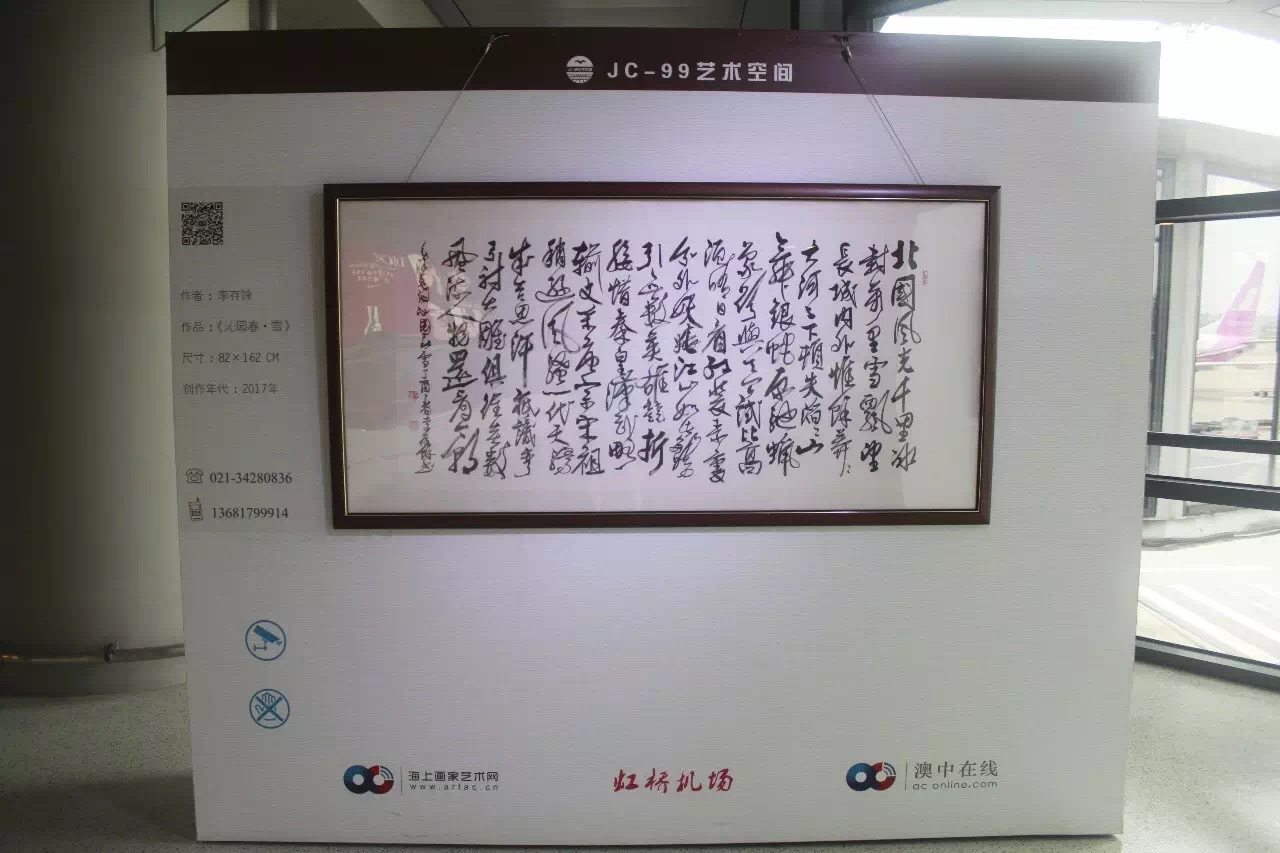 JC-99艺术空间
作者：李存
作品：《沁园春·雪》
尺寸：82×162 CM
创作年代：2017年
021-34280836
13681799914
北國風光千里冰
封萬里雪飄望
長城內外惟餘莽〻
大河上下頓失滔〻山
舞銀蛇原馳蠟
象欲與天公試比高
須晴日看紅裝素裹
分外妖嬈江山如此多嬌
引無數英雄競折
腰惜秦皇漢武略
輸文采唐宗宋祖
稍遜風騷一代天驕
成吉思汗祇識彎
弓射大雕俱往矣數
風流人物還看今朝
沁園春雪丁酉
海上画家艺术网
www.artac.cn
虹桥机场
澳中在线
ac online.com